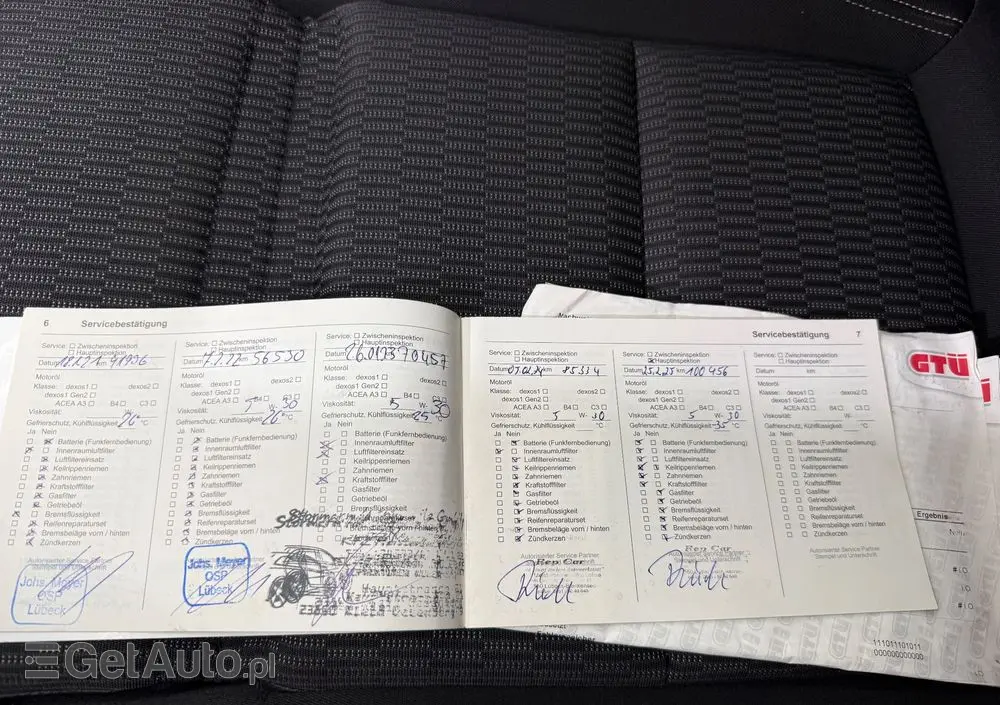 6 Servicebestätigung
Service: Zwischeninspektion
Hauptinspektion
Datum km
Motoröl
Klasse: dexos1 dexos2
dexos1 Gen2
ACEA A3 B4 C3
Viskosität: W-
Gefrierschutz, Kühlflüssigkeit 26 °C
Ja Nein
Batterie (Funkfernbedienung)
Innenraumluftfilter
Luftfiltereinsatz
Keilrippenriemen
Zahnriemen
Kraftstofffilter
Gasfilter
Getriebeöl
Bremsflüssigkeit
Reifenreparaturset
Bremsbeläge vorn / hinten
Zündkerzen
Autorisierter Service Partner
Johs. Meyer
OSP
Lübeck
Service: Zwischeninspektion
Hauptinspektion
Datum km 56530
Motoröl
Klasse: dexos1 dexos2
dexos1 Gen2
ACEA A3 B4 C3
Viskosität: 5 W- 30
Gefrierschutz, Kühlflüssigkeit 26 °C
Ja Nein
Batterie (Funkfernbedienung)
Innenraumluftfilter
Luftfiltereinsatz
Keilrippenriemen
Zahnriemen
Kraftstofffilter
Gasfilter
Getriebeöl
Bremsflüssigkeit
Reifenreparaturset
Bremsbeläge vorn / hinten
Zündkerzen
Johs. Meyer
OSP
Lübeck
Service: Zwischeninspektion
Hauptinspektion
Datum 70457
Motoröl
Klasse: dexos1 dexos2
dexos1 Gen2
ACEA A3 B4 C3
Viskosität: 5 W- 30
Gefrierschutz, Kühlflüssigkeit -25 °C
Ja Nein
Batterie (Funkfernbedienung)
Innenraumluftfilter
Luftfiltereinsatz
Keilrippenriemen
Zahnriemen
Kraftstofffilter
Gasfilter
Getriebeöl
Bremsflüssigkeit
Servicebestätigung 7
Service: Zwischeninspektion
Hauptinspektion
Datum km 85334
Motoröl
Klasse: dexos1 dexos2
dexos1 Gen2
ACEA A3 B4 C3
Viskosität: 5 W- 30
Gefrierschutz, Kühlflüssigkeit °C
Ja Nein
Batterie (Funkfernbedienung)
Innenraumluftfilter
Luftfiltereinsatz
Keilrippenriemen
Zahnriemen
Kraftstofffilter
Gasfilter
Getriebeöl
Bremsflüssigkeit
Reifenreparaturset
Bremsbeläge vorn / hinten
Zündkerzen
Autorisierter Service Partner
Rep Car
Service: Zwischeninspektion
Hauptinspektion
Datum 25.2.25 km 100456
Motoröl
Klasse: dexos1 dexos2
dexos1 Gen2
ACEA A3 B4 C3
Viskosität: 5 W- 30
Gefrierschutz, Kühlflüssigkeit -35 °C
Ja Nein
Batterie (Funkfernbedienung)
Innenraumluftfilter
Luftfiltereinsatz
Keilrippenriemen
Zahnriemen
Kraftstofffilter
Gasfilter
Getriebeöl
Bremsflüssigkeit
Reifenreparaturset
Bremsbeläge vorn / hinten
Zündkerzen
Rep Car
Service: Zwischeninspektion
Hauptinspektion
Datum km
Motoröl
Klasse: dexos1 dexos2
dexos1 Gen2
ACEA A3 B4 C3
Viskosität: W-
Gefrierschutz, Kühlflüssigkeit °C
Ja Nein
Batterie (Funkfernbedienung)
Innenraumluftfilter
Luftfiltereinsatz
Keilrippenriemen
Zahnriemen
Kraftstofffilter
Gasfilter
Getriebeöl
Bremsflüssigkeit
Reifenreparaturset
Bremsbeläge vorn / hinten
Zündkerzen
Autorisierter Service Partner
Stempel und Unterschrift
GTÜ
Ergebnis
111011101011
000000000000
GetAuto.pl